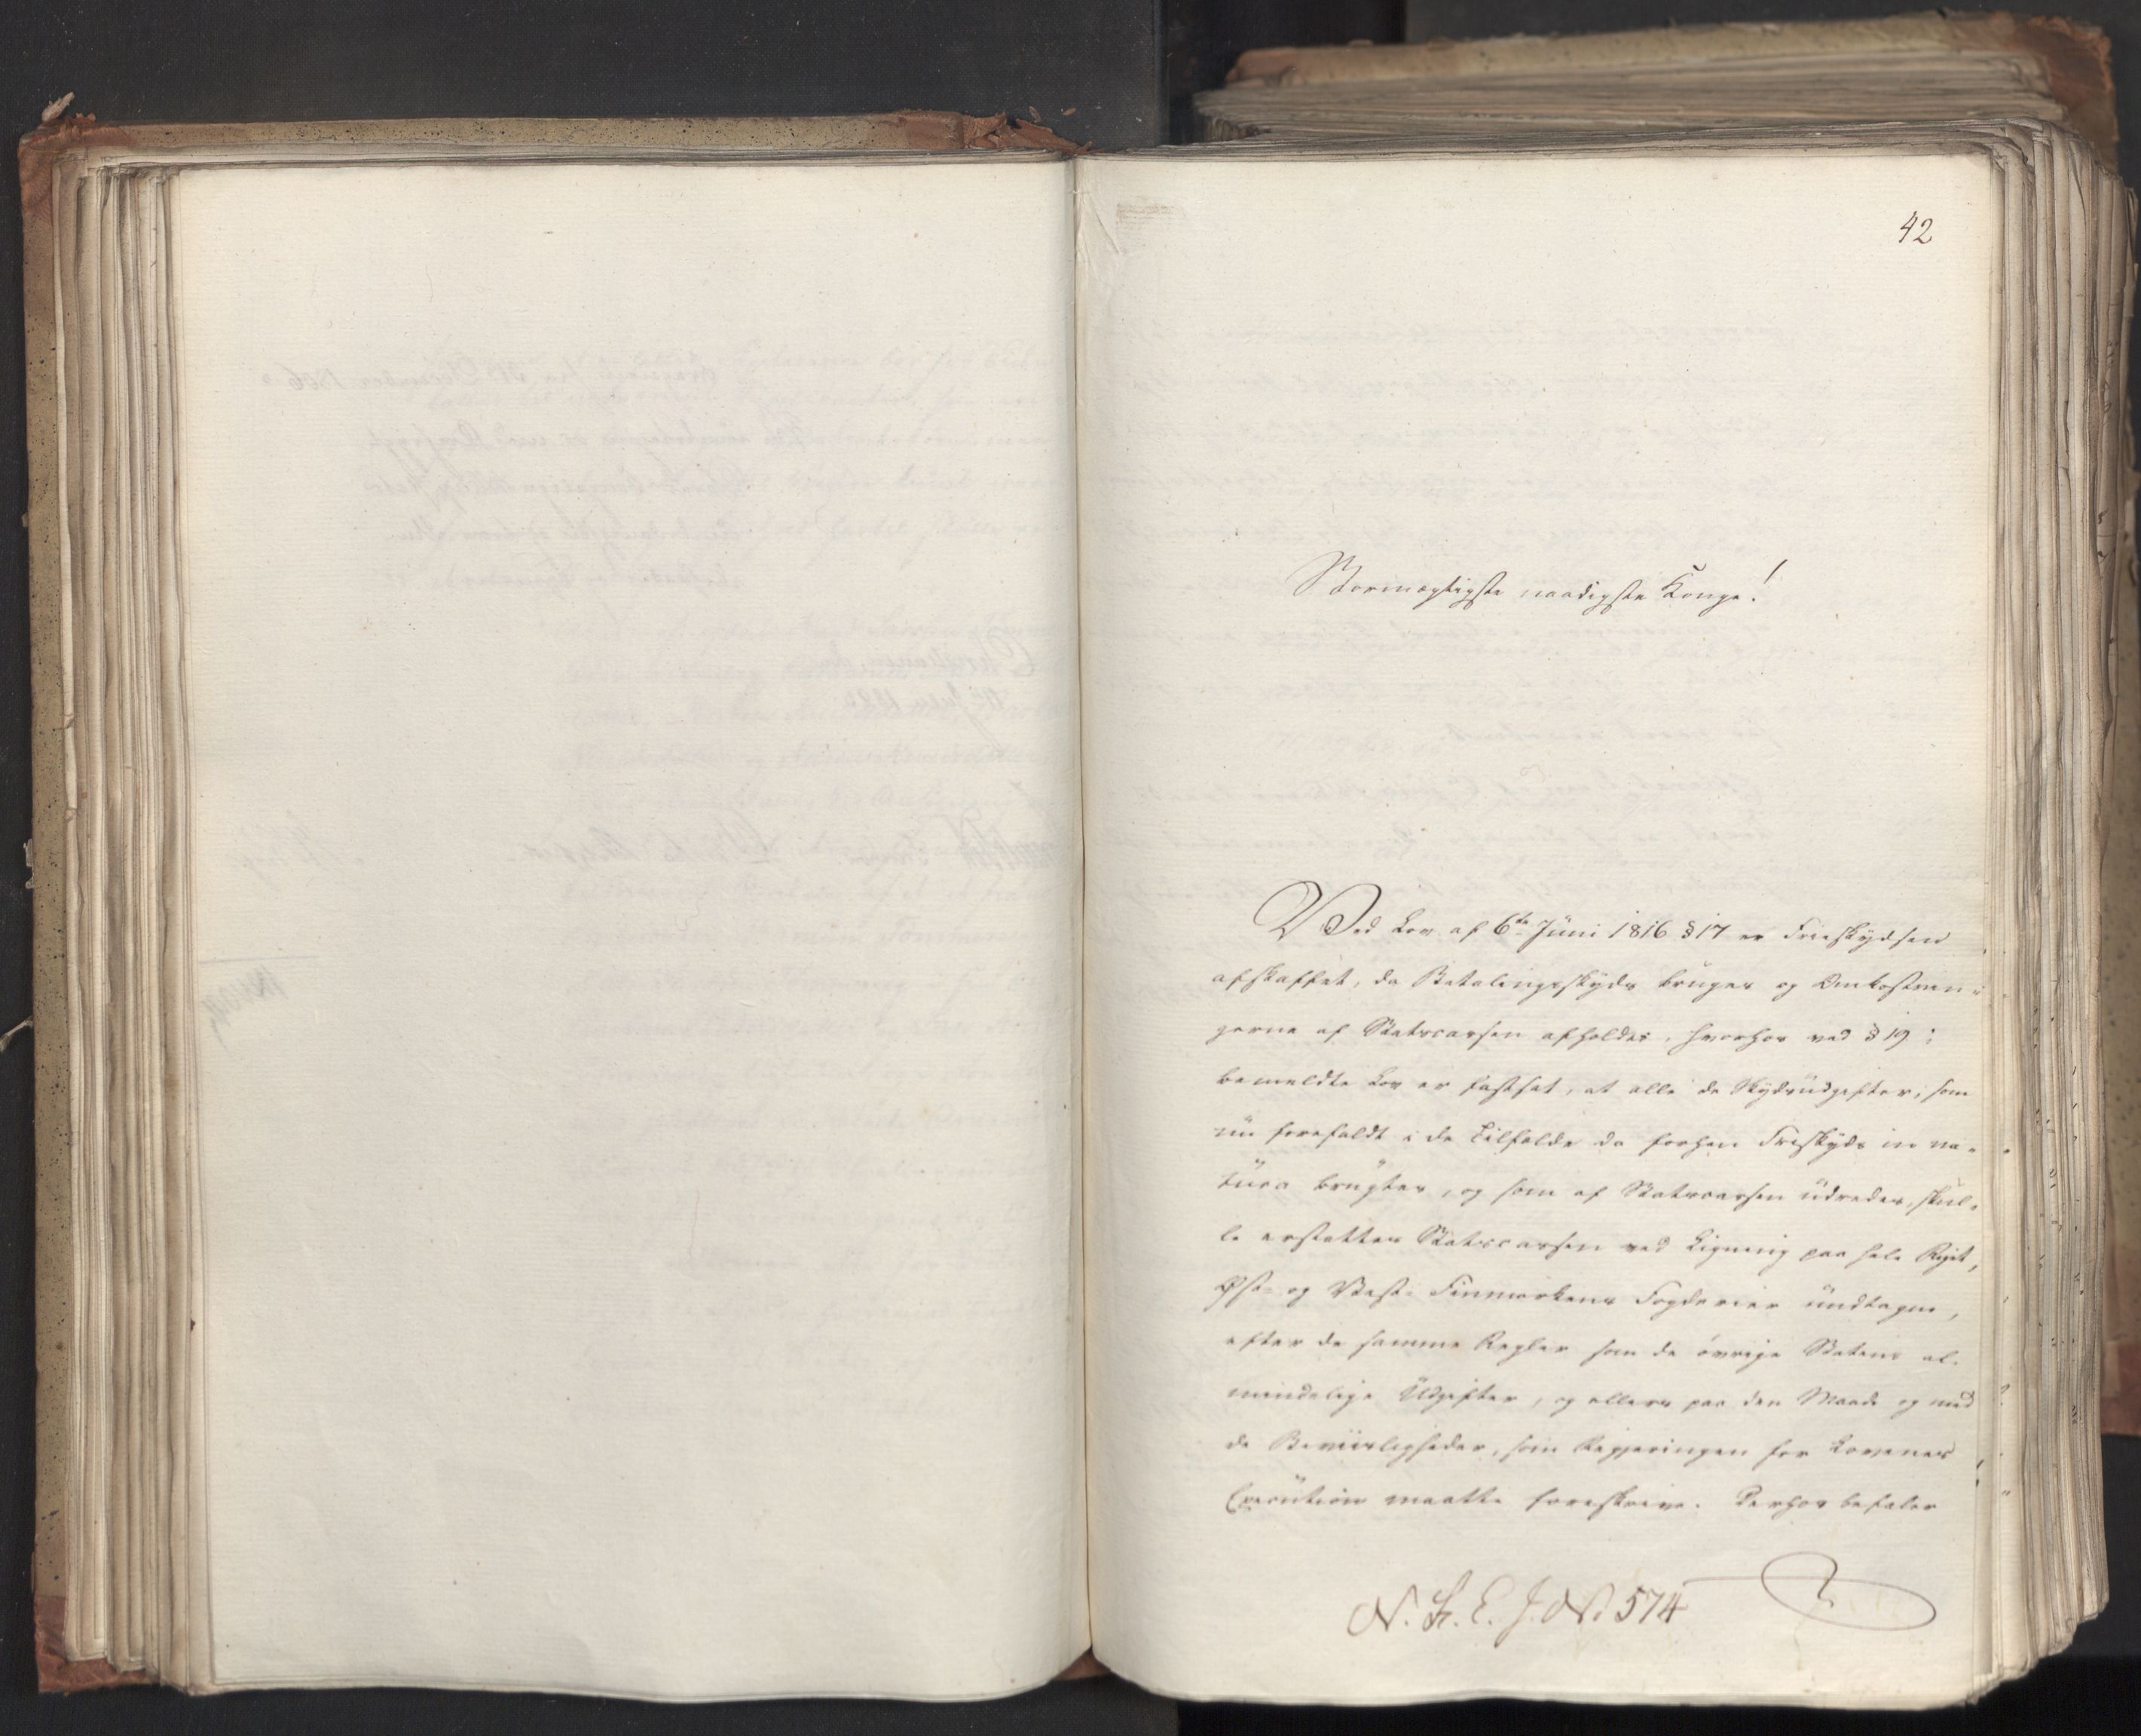 42
Stormægtigste naadigste Konge!
Ved Lov af 6te Juni 1816 § 17 er Frieskydsen
afskaffet, da Betalingsskyds bruges og Omkostnin-
gerne af Statscassen afholdes, hvorhos ved § 19 i
bemeldte Lov er fastsat, at alle de Skydsudgifter, som
nu forefaldt i de Tilfælde da forhen Friskyds in na-
tura brugtes, og som af Statscassen udredes, skul-
le erstattes Statscassen ved Ligning paa hele Riget,
Øst- og Vest-Finmarkens Fogderier undtagne,
efter de samme Regler som de øvrige Statens al-
mindelige Udgifter, og ellers paa den Maade og med
de Beviisligheder, som Regjeringen for Lovenes
Execution maatte foreskrive. Derhos befaler
N. H. E. J. No. 574